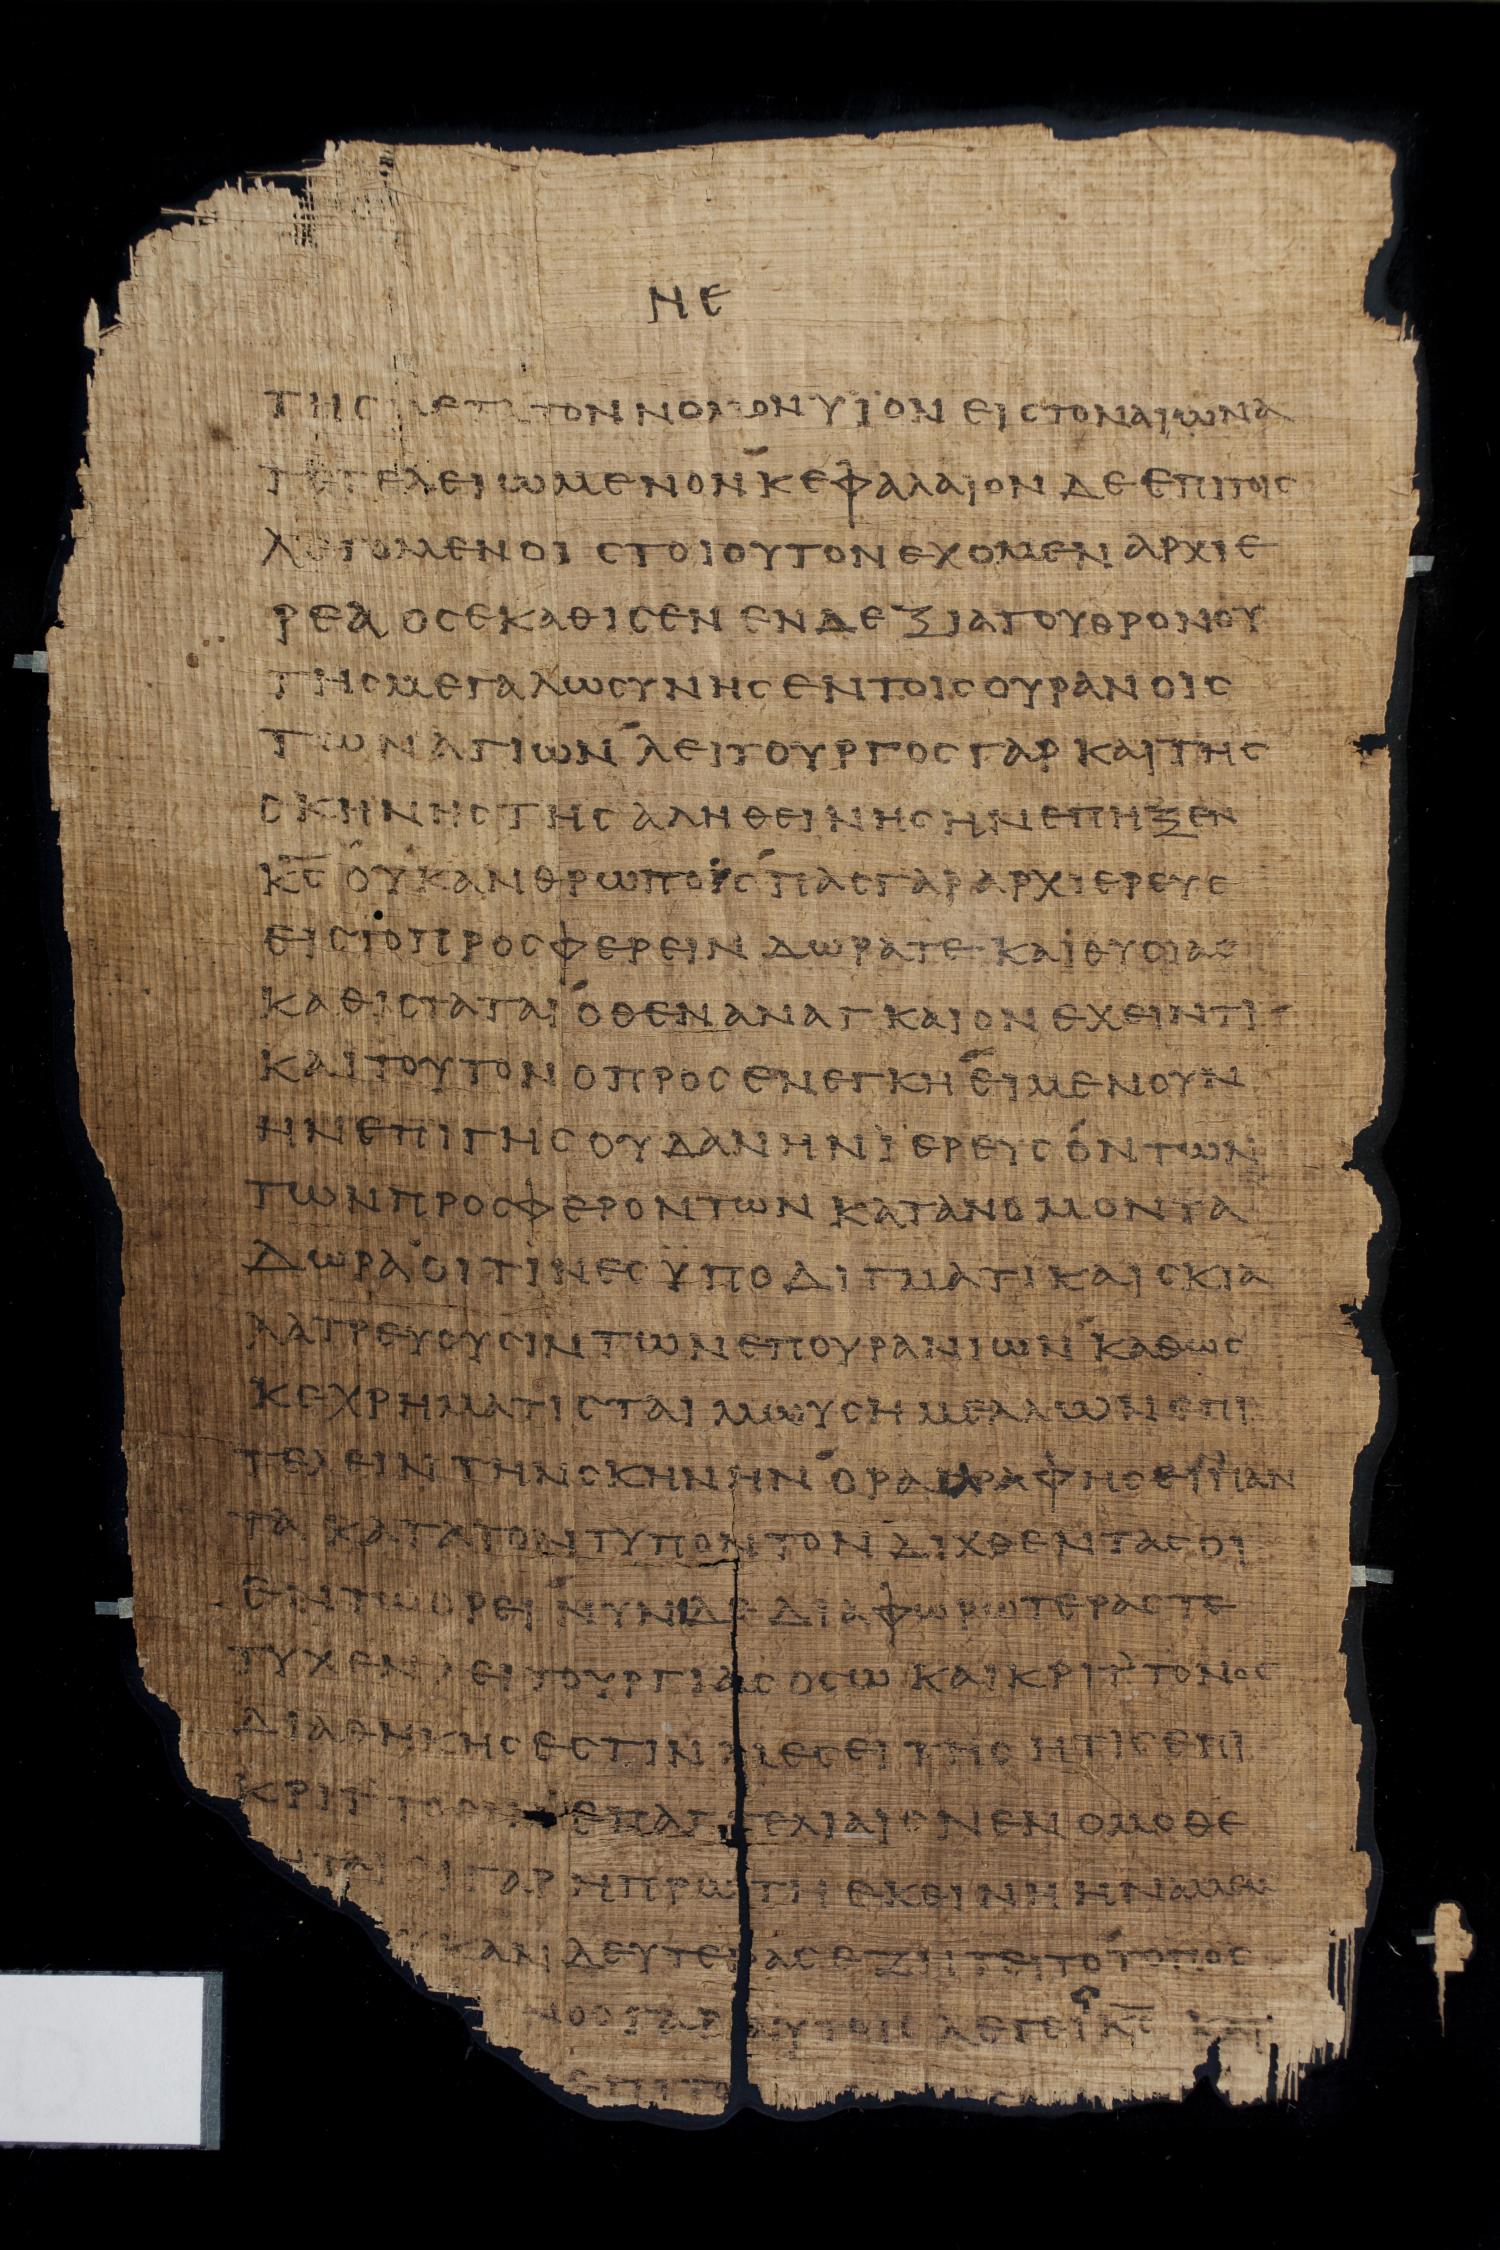 ΝΕ
ΤΗϹ ΜΕΤΑ ΤΟΝ ΝΟΜΟΝ ΥΪΟΝ ΕΙϹ ΤΟΝ ΑΙωΝΑ
ΤΕΤΕΛΕΙωΜΕΝΟΝ ΚΕΦΑΛΑΙΟΝ ΔΕ ΕΠΙ ΤΟΙϹ
ΛΕΓΟΜΕΝΟΙϹ ΤΟΙΟΥΤΟΝ ΕΧΟΜΕΝ ΑΡΧΙΕ
ΡΕΑ ΟϹ ΕΚΑΘΙϹΕΝ ΕΝ ΔΕΞΙΑ ΤΟΥ ΘΡΟΝΟΥ
ΤΗϹ ΜΕΓΑΛωϹΥΝΗϹ ΕΝ ΤΟΙϹ ΟΥΡΑΝΟΙϹ
ΤωΝ ΑΓΙωΝ ΛΕΙΤΟΥΡΓΟϹ ΓΑΡ ΚΑΙ ΤΗϹ
ϹΚΗΝΗϹ ΤΗϹ ΑΛΗΘΕΙΝΗϹ ΗΝ ΕΠΗΞΕΝ
Κ̅Ϲ̅ ΟΥΚ ΑΝΘΡωΠΟϹ ΠΑϹ ΓΑΡ ΑΡΧΙΕΡΕΥϹ
ΕΙϹ ΤΟ ΠΡΟϹΦΕΡΕΙΝ ΔωΡΑ ΤΕ ΚΑΙ ΘΥϹΙΑϹ
ΚΑΘΙϹΤΑΤΑΙ ΟΘΕΝ ΑΝΑΓΚΑΙΟΝ ΕΧΕΙΝ ΤΙ
ΚΑΙ ΤΟΥΤΟΝ Ο ΠΡΟϹΕΝΕΓΚΗ ΕΙ ΜΕΝ ΟΥΝ
ΗΝ ΕΠΙ ΓΗϹ ΟΥΔ ΑΝ ΗΝ ΪΕΡΕΥϹ ΟΝΤωΝ
ΤωΝ ΠΡΟϹΦΕΡΟΝΤωΝ ΚΑΤΑ ΝΟΜΟΝ ΤΑ
ΔωΡΑ ΟΙΤΙΝΕϹ ΫΠΟΔΙΓΜΑΤΙ ΚΑΙ ϹΚΙΑ
ΛΑΤΡΕΥΟΥϹΙΝ ΤωΝ ΕΠΟΥΡΑΝΙωΝ ΚΑΘωϹ
ΚΕΧΡΗΜΑΤΙϹΤΑΙ ΜωΥϹΗ ΜΕΛΛωΝ ΕΠΙ
ΤΕΛΕΙΝ ΤΗΝ ϹΚΗΝΗΝ ΟΡΑ ΓΡΑΦΗϹΕΙ ΠΑΝ
ΤΑ ΚΑΤΑ ΤΟΝ ΤΥΠΟΝ ΤΟΝ ΔΙΧΘΕΝΤΑ ϹΟΙ
ΕΝ Τω ΟΡΕΙ ΝΥΝ ΔΕ ΔΙΑΦωΡωΤΕΡΑϹ ΤΕ
ΤΥΧΕΝ ΛΕΙΤΟΥΡΓΙΑϹ ΟϹω ΚΑΙ ΚΡΙΤΤΟΝΟϹ
ΔΙΑΘΗΚΗϹ ΕϹΤΙΝ ΜΕϹΕΙΤΗϹ ΗΤΙϹ ΕΠΙ
ΚΡΙΤΤΟϹΙΝ ΕΠΑΓΓΕΛΙΑΙϹ ΝΕΝΟΜΟΘΕ
ΤΗΤΑΙ ΕΙ ΓΑΡ Η ΠΡωΤΗ ΕΚΕΙΝΗ ΗΝ ΑΜΕΜ
ΟΥΚ ΑΝ ΔΕΥΤΕΡΑϹ ΕΖΗΤΕΙΤΟ ΤΟΠΟϹ
ΓΑΡ ΑΥΤΟΙϹ ΛΕΓΕΙ Κ̅Ϲ̅
ΕΠΙ